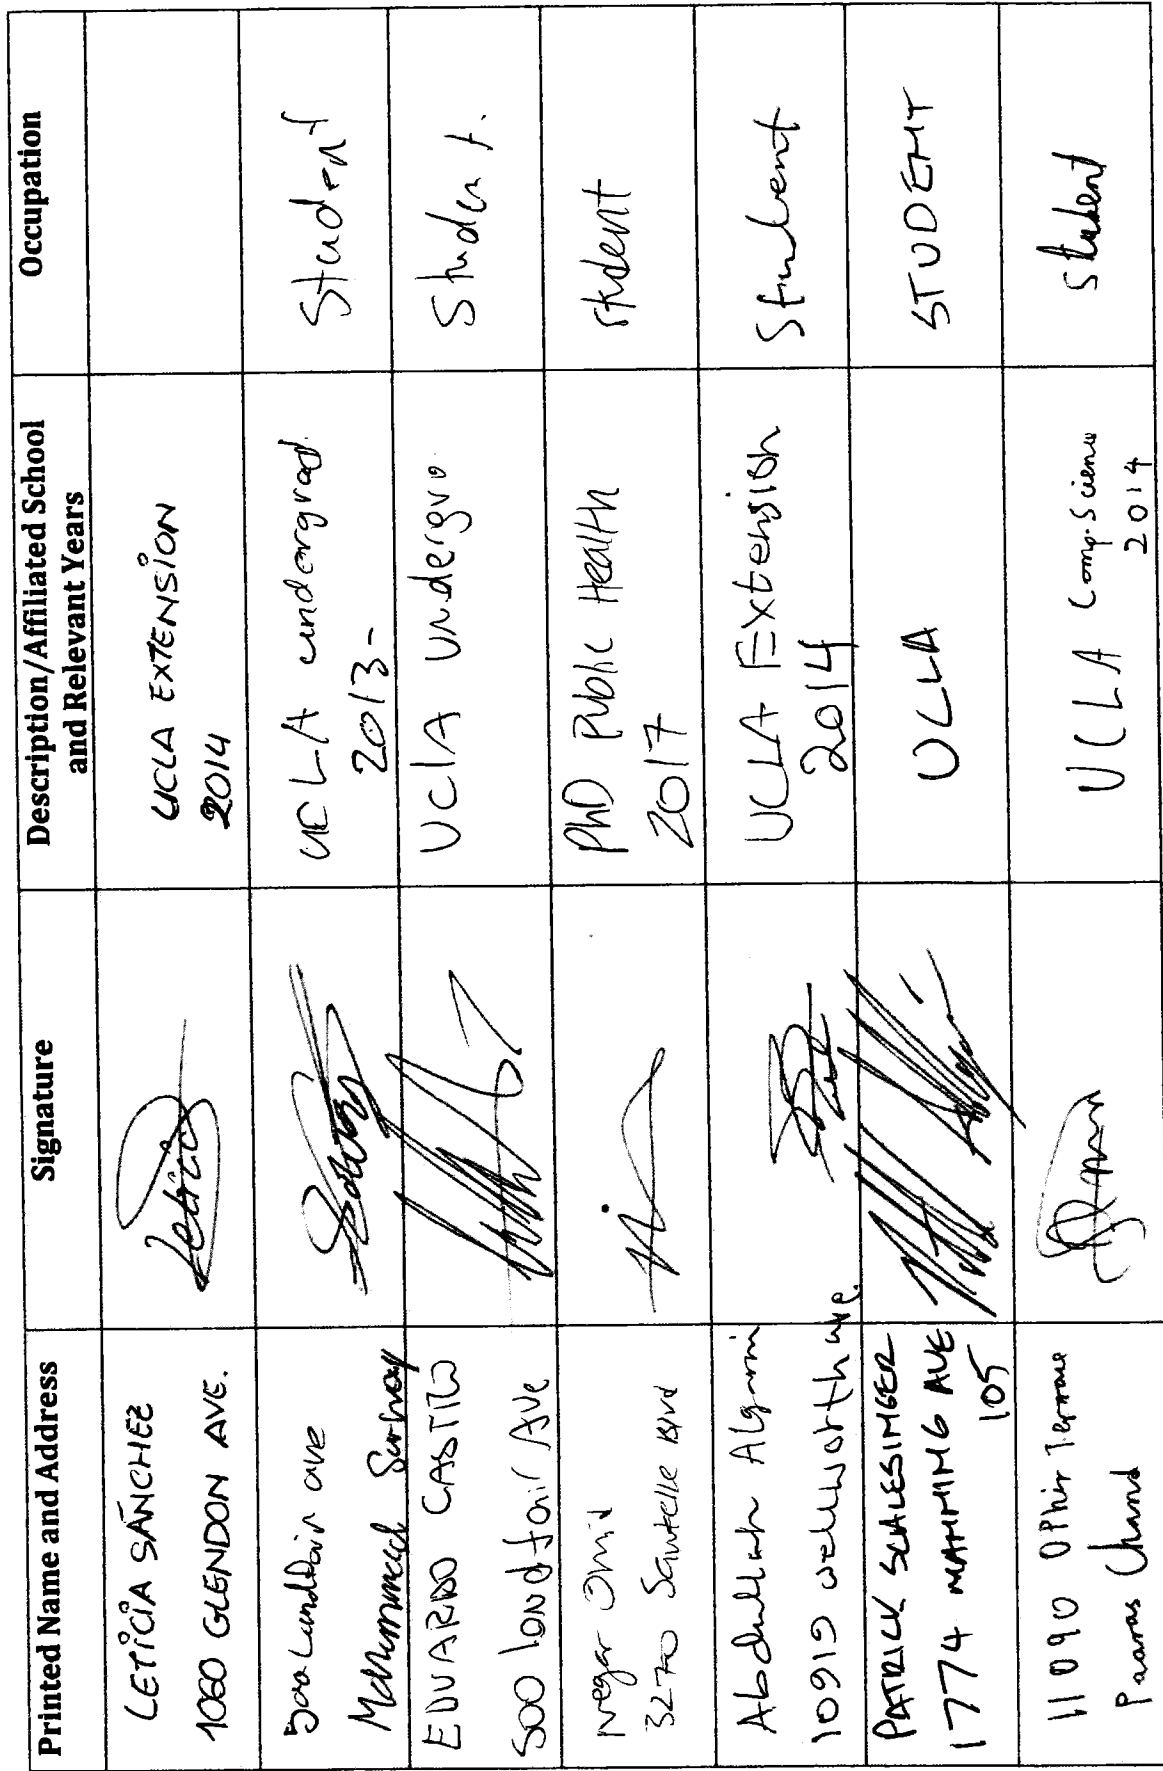 Printed Name and Address
Signature
Description/Affiliated School
and Relevant Years
Occupation
LETICIA SÁNCHEZ
1060 GLENDON AVE.
Leticia
UCLA EXTENSION
2014
500 Landfair ave
Mohammad
UCLA undergrad.
2013-
Student
EDUARDO CASTILLO
500 landfair Ave
UClA Undergra.
Student.
Negar Omid
3270 Sawtelle Blvd
PhD Public Health
2017
student
Abdullah Algarni
10919 wellworth ave.
UCLA Extension
2014
Student
PATRICK SCALESINGER
1774 MANNING AVE
105
UCLA
STUDENT
11090 Ophir Terrace
Paaras Chand
UCLA Comp. Science
2014
student